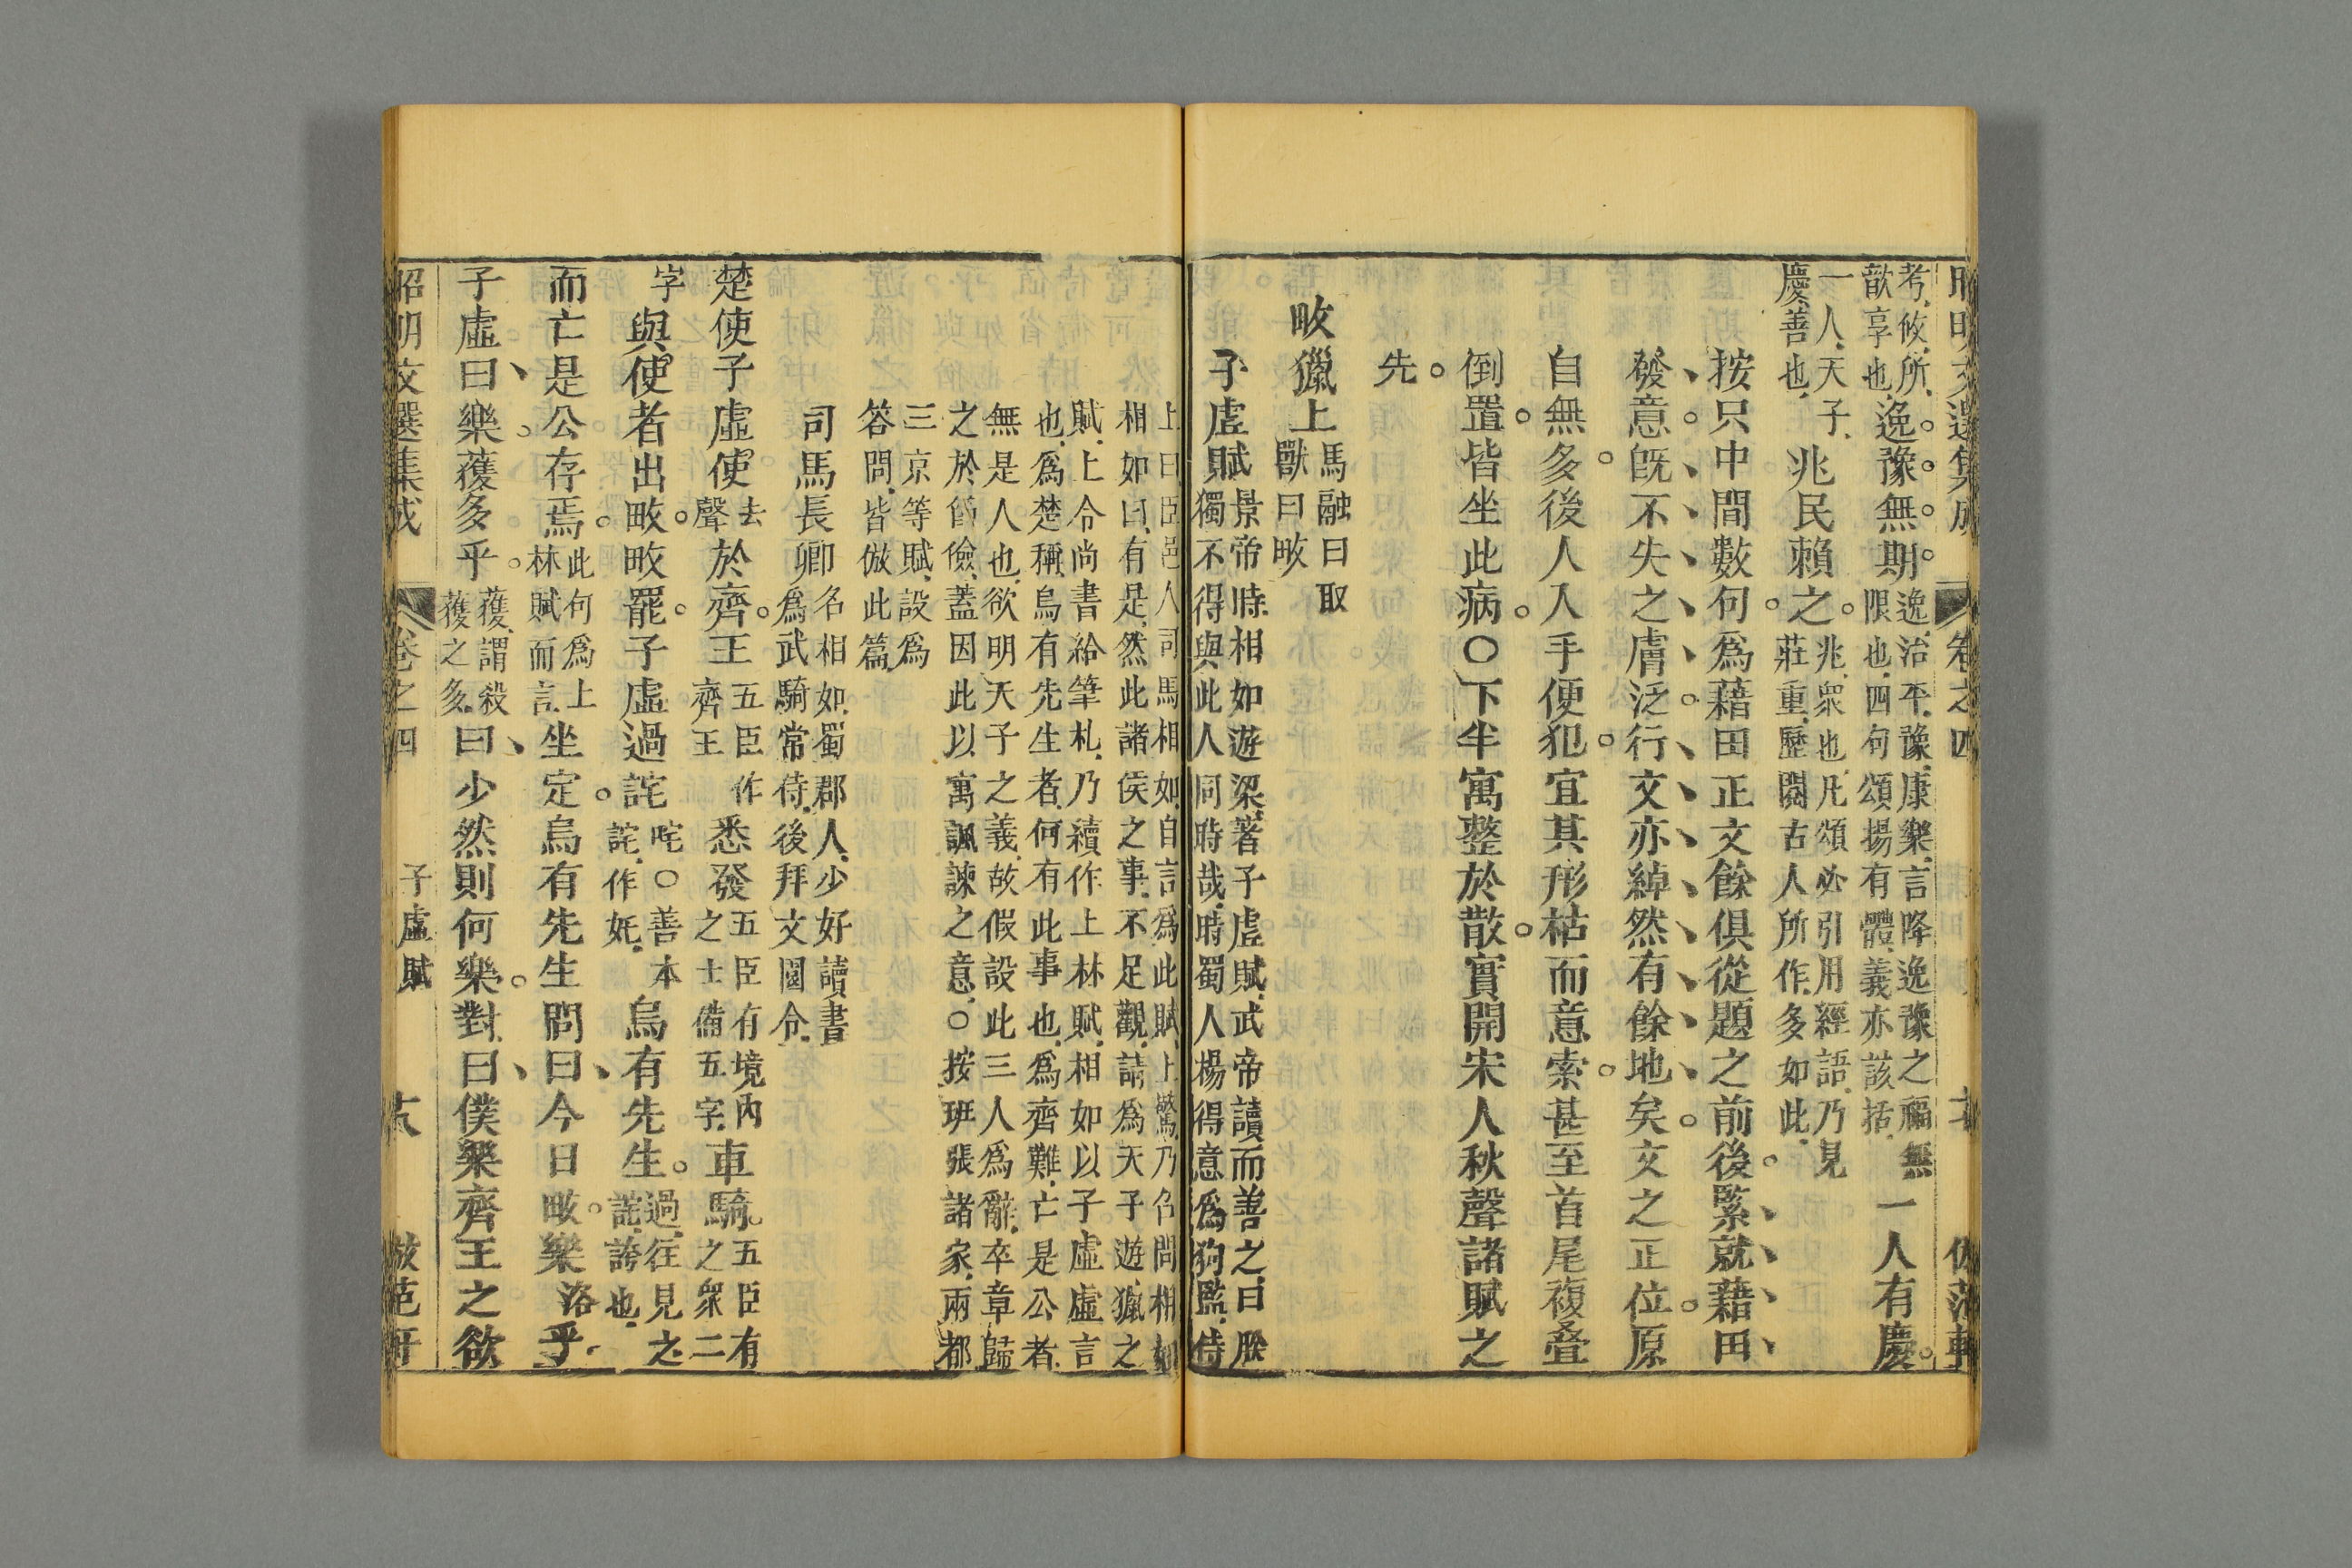 昭明文選集成 卷之四 倣范軒
考攸所
歆享也逸豫無期逸治平豫康樂言降逸豫之福無
限也四句頌揚有體義亦該括一人有慶
一人天子
慶善也兆民賴之兆衆也凡頌必引用經語乃見
莊重歷閱古人所作多如此
按只中間數句爲藉田正文餘俱從題之前後緊就藉田
發意旣不失之膚泛行文亦綽然有餘地矣文之正位原
自無多後人入手便犯宜其形枯而意索甚至首尾複叠
倒置皆坐此病○下半寓整於散實開宋人秋聲諸賦之
先
畋獵上馬融曰取
獸曰畋
子虛賦景帝時相如遊梁著子虛賦武帝讀而善之曰朕
獨不得與此人同時哉時蜀人楊得意爲狗監侍
上曰臣邑人司馬相如自言爲此賦上驚乃召問相如
相如曰有是然此諸侯之事不足觀請爲天子遊獵之
賦上令尚書給筆札乃續作上林賦相如以子虛虛言
也爲楚稱烏有先生者何有此事也爲齊難亡是公者
無是人也欲明天子之義故假設此三人爲辭卒章歸
之於節儉蓋因此以寓諷諫之意○按班張諸家兩都
三京等賦設爲
答問皆倣此篇
司馬長卿名相如蜀郡人少好讀書
爲武騎常侍後拜文園令
楚使子虛使去
聲於齊王五臣作
齊王悉發五臣有境內
之士備五字車騎五臣有
之衆二
字與使者出畋畋罷子虛過詫咤○善本
詫作奼烏有先生過往見之
詫誇也
而亡是公存焉此何爲上
林賦而言坐定烏有先生問曰今日畋樂洛乎
子虛曰樂獲多乎獲謂殺
獲之多曰少然則何樂對曰僕樂齊王之欲
昭明文選集成 卷之四 子虛賦 六 倣范軒